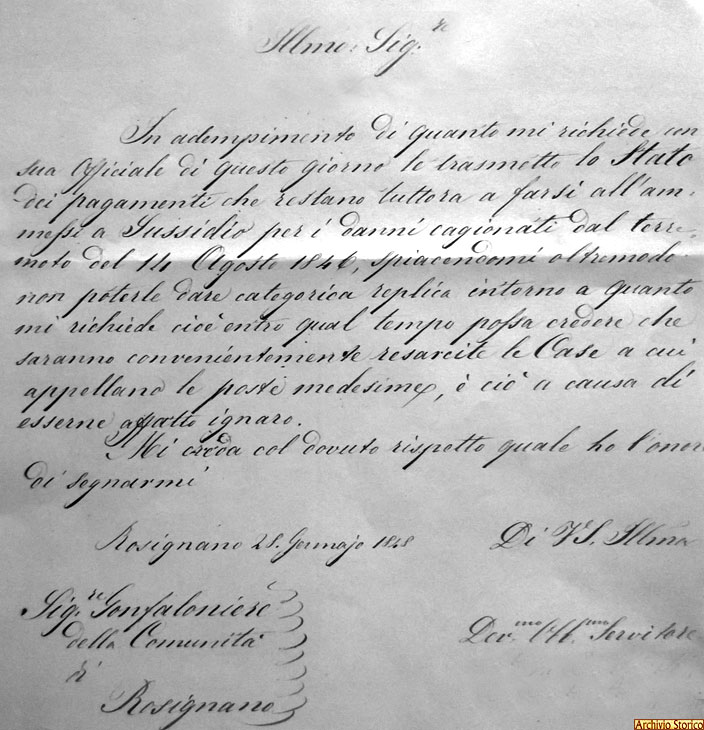 Illmo. Sig.re
In adempimento di quanto mi richiede con
sua Officiale di questo giorno le trasmetto lo Stato
dei pagamenti che restano tuttora a farsi all'am-
messi a Sussidio per i danni cagionati dal terre-
moto del 14 Agosto 1846, spiacendomi oltremodo
non poterle dare categorica replica intorno a quanto
mi richiede cioè entro qual tempo possa credere che
saranno convenientemente resarcite le Case a cui
appellano le poste medesime, e ciò a causa di
esserne affatto ignaro.
Mi creda col dovuto rispetto quale ho l'onore
di segnarmi
Rosignano 28. Gennajo 1848
Di VS. Illma
Sig.re Gonfaloniere
della Comunità
di
Rosignano
Dev.mo Obb.mo Servitore
Archivio Storico